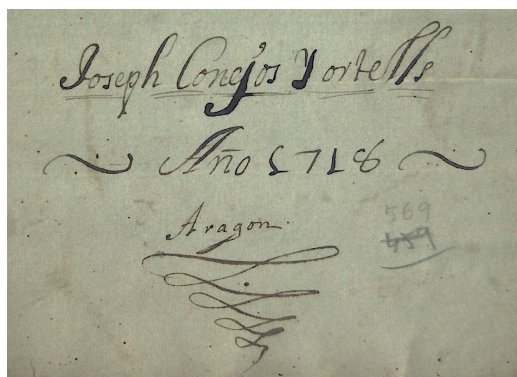 Joseph Conejos Y ortells
Año 1718
Aragon
569
459